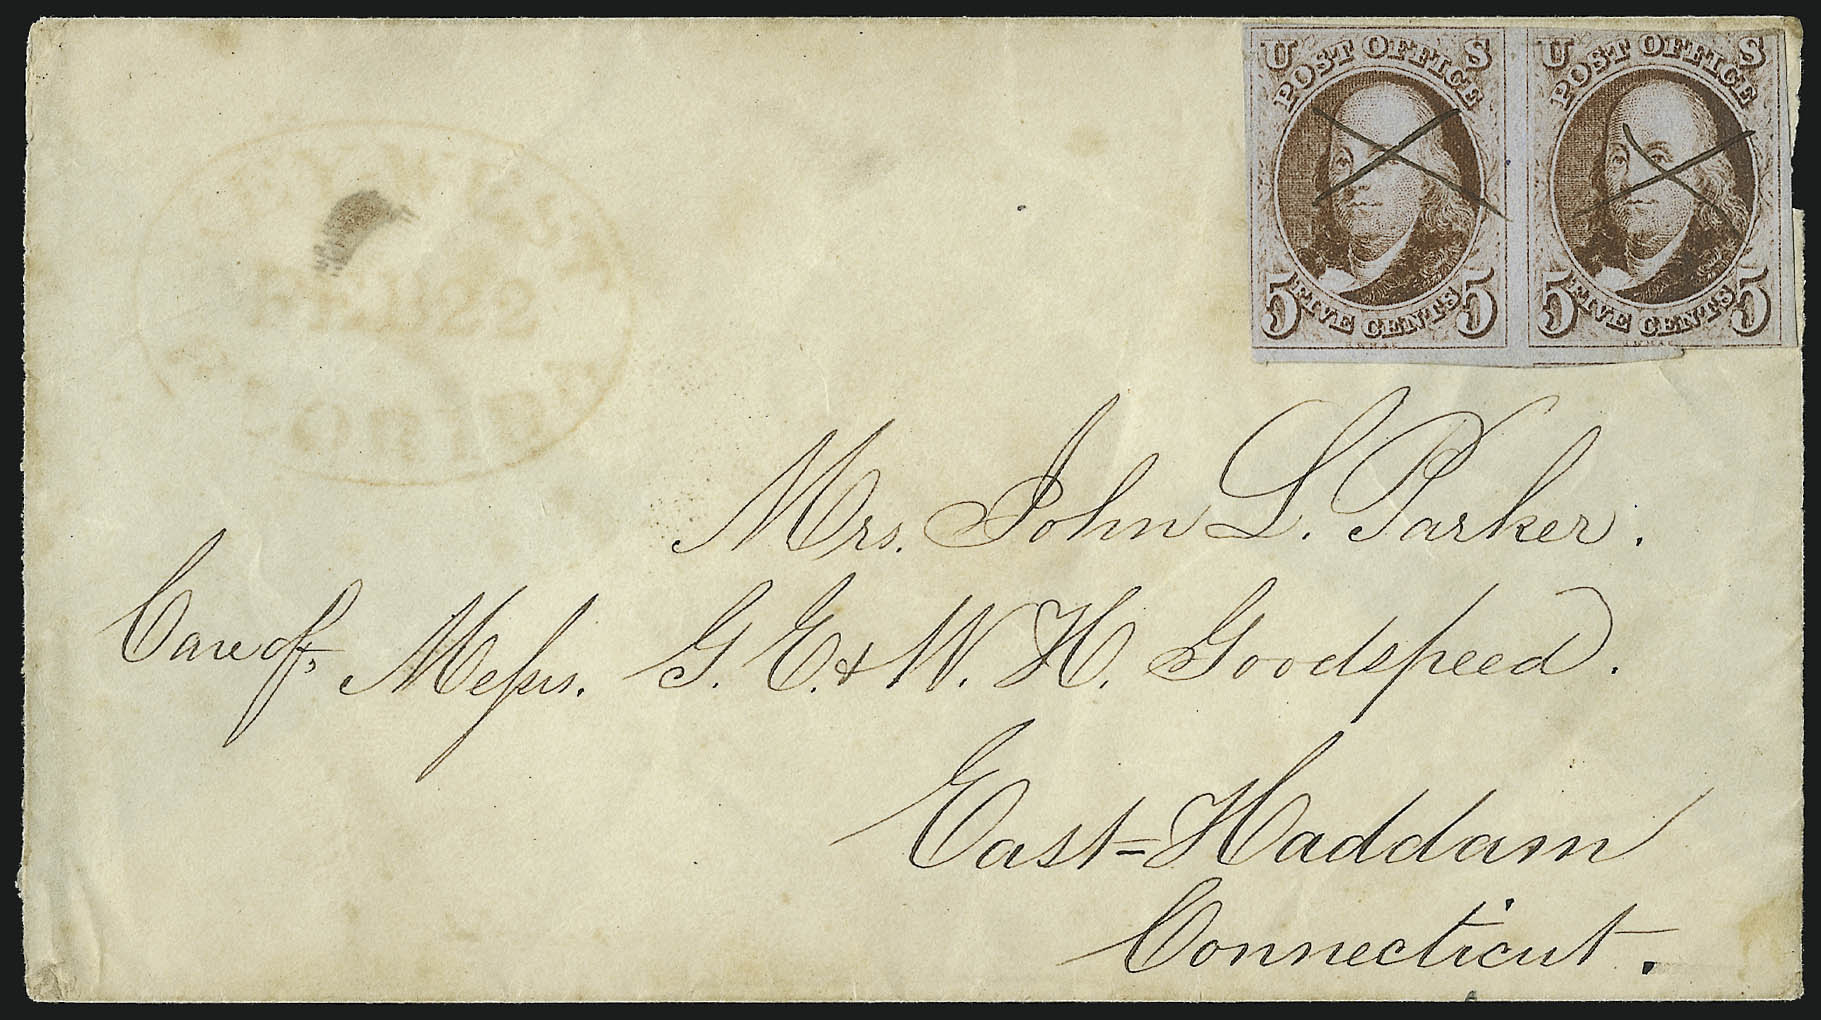 U S
POST OFFICE
5 FIVE CENTS 5
U S
POST OFFICE
5 FIVE CENTS 5
Mrs. John L. Parker.
Care of, Messrs. G. E. & W. H. Goodspeed.
East-Haddam
Connecticut.